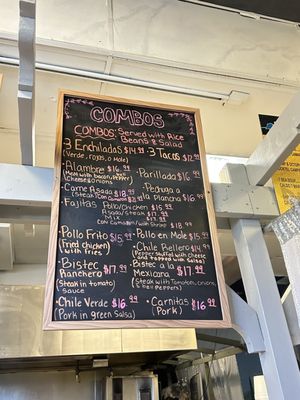 COMBOS
COMBOS: Served with Rice
Beans & Salad
3 Enchiladas $14.99
(Verde, rojas, o mole)
3 Tacos $12.99
Alambre $16.99
(Meat with bacon, Pepper,
Cheese, onions)
Parrillada $16.99
Carne Asada $18.99
Pechuga a
la plancha $16.99
Fajitas Pollo/Chicken $15.99
Asada/Steak $17.99
Mix $17.99
Con Camaron/with Shrimp $18.99
Pollo Frito $15.99
(Fried chicken)
with fries
Pollo en Mole $15.99
Chile Relleno $14.99
(Pepper stuffed with Cheese
and topped with Salsa)
Bistec
Ranchero $17.99
(Steak in tomato)
sauce
Bistec a la
Mexicana $17.99
(Steak with Tomatoes, onions,
& Bell Peppers)
Chile Verde $16.99
(Pork in green Salsa)
Carnitas $16.99
(Pork)